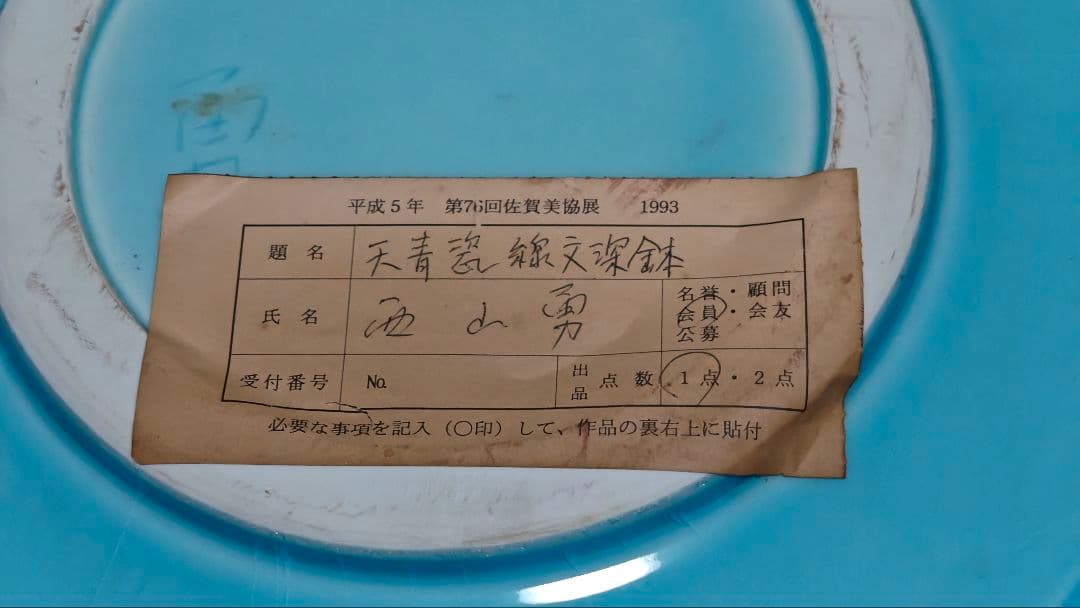 平成5年 第76回佐賀美協展 1993
題名 天青瓷線文深鉢
氏名 西山勇 名誉・顧問
会員・会友
公募
受付番号 No. 出品点数 1点・2点
必要な事項を記入(○印)して、作品の裏右上に貼付